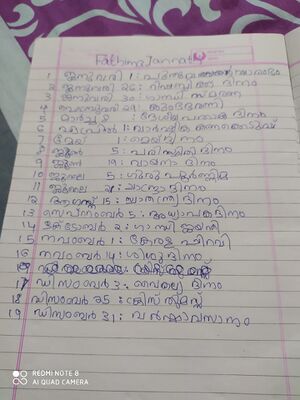 Fathima Jannat
1 ജനുവരി 1:
2 ജനുവരി 26: റിപ്പബ്ലിക് ദിനം
3 ജനുവരി 30: ഗാന്ധി സ്മരണ
5 മാർച്ച് 8 : ദിനം
6 ഏപ്രിൽ 1:
7 മേയ് 1: മെയ് ദിനം
8 ജൂൺ 5: പരിസ്ഥിതി ദിനം
9 ജൂൺ 19: വായനാ ദിനം
10 ജൂലൈ 5:
11 ജൂലൈ 21: ചാന്ദ്രാ ദിനം
12 ആഗസ്ത് 15: സ്വാതന്ത്ര്യ ദിനം
13 സെപ്റ്റംബർ 5: അധ്യാപകദിനം
14 ഒക്ടോബർ 2: ഗാന്ധി ജയന്തി
15 നവംബർ 1: കേരള പിറവി
16 നവംബർ 14: ശിശുദിനം
17 ഡിസംബർ 3: ദിനം
18 ഡിസംബർ 25: ക്രിസ്തുമസ്സ്
19 ഡിസംബർ 31: വർഷാവസാനം
REDMI NOTE 8
AI QUAD CAMERA